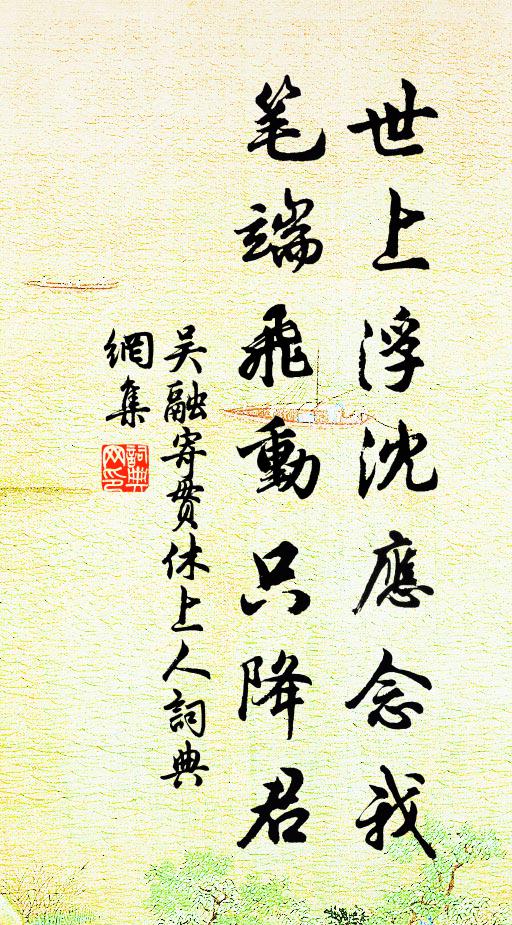 世上浮沈應念我
笔端飛動只降君
吴融寄貫休上人詞典
網集
詞典
网印